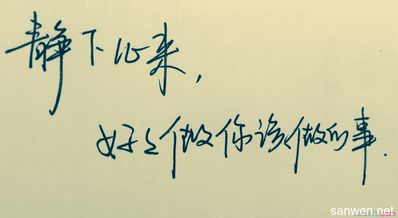 静下心来，
好々做你该做的事.
sanwen.net